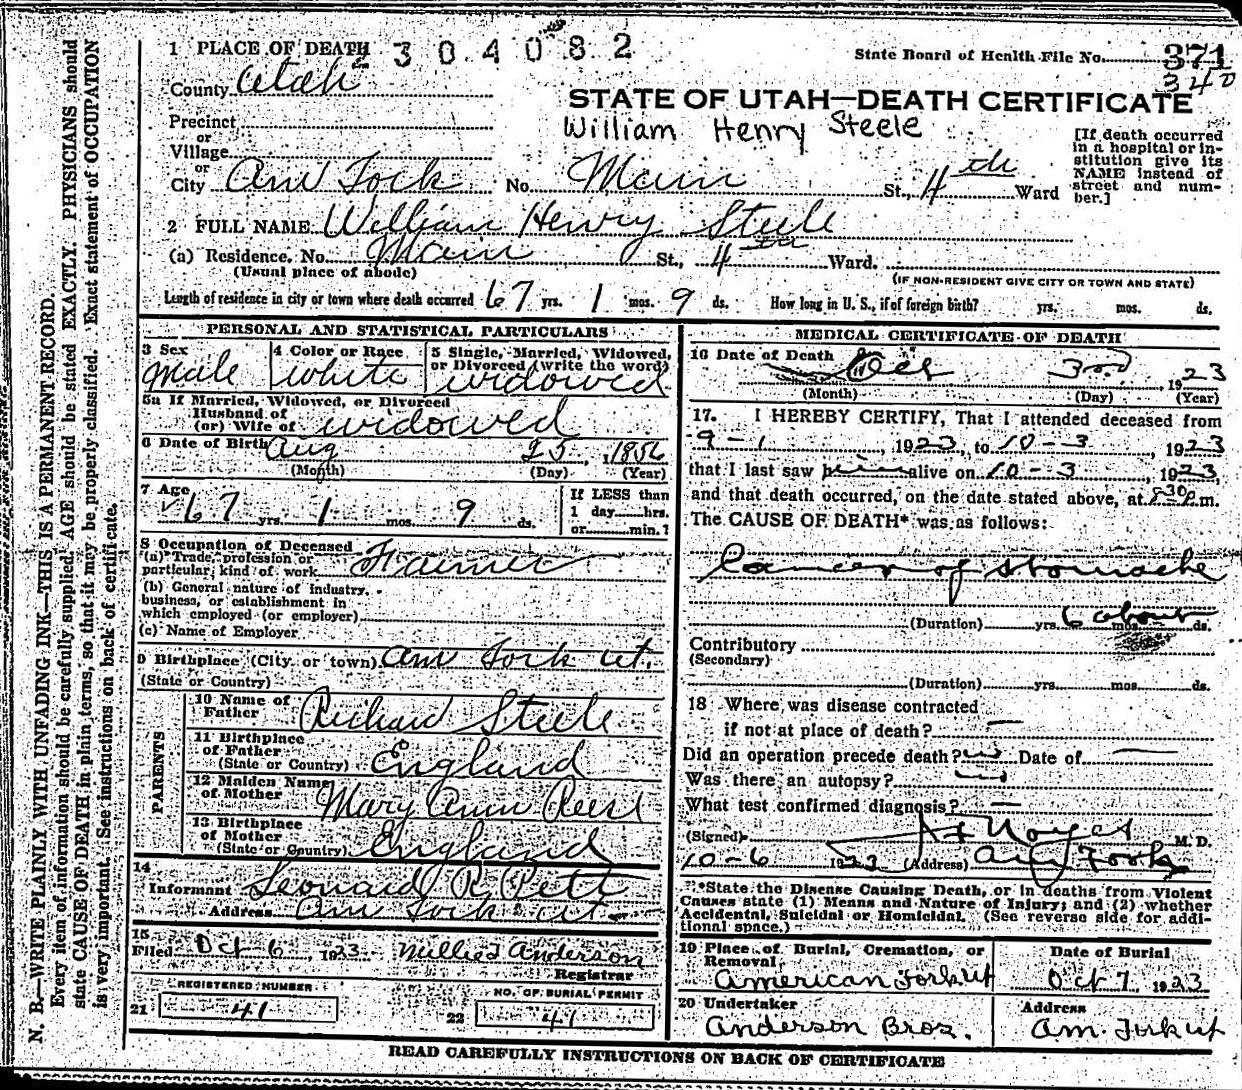 1 PLACE OF DEATH 304082
State Board of Health File No. 371
340
County Utah
STATE OF UTAH—DEATH CERTIFICATE
William Henry Steele
Precinct
or
Village
or
City Am Fork No. Main St., 4th Ward
[If death occurred
in a hospital or in-
stitution give its
NAME instead of
street and num-
ber.]
2 FULL NAME William Henry Steele
(a) Residence. No. Main St., 4th Ward.
(Usual place of abode)
(IF NON-RESIDENT GIVE CITY OR TOWN AND STATE)
Length of residence in city or town where death occurred 67 yrs. 1 mos. 9 ds. How long in U. S., if of foreign birth? yrs. mos. ds.
PERSONAL AND STATISTICAL PARTICULARS
3 Sex
Male
4 Color or Race
white
5 Single, Married, Widowed,
or Divorced (write the word)
widowed
5a If Married, Widowed, or Divorced
Husband of
(or) Wife of widowed
6 Date of Birth Aug 25, 1856
(Month) (Day) (Year)
7 Age
67 yrs. 1 mos. 9 ds.
If LESS than
1 day hrs.
or min.?
8 Occupation of Deceased
(a) Trade, profession or
particular kind of work Farmer
(b) General nature of industry,
business, or establishment in
which employed (or employer)
(c) Name of Employer
9 Birthplace (City or town) Am Fork Ut.
(State or Country)
PARENTS
10 Name of
Father Richard Steele
11 Birthplace
of Father
(State or Country) England
12 Maiden Name
of Mother Mary Ann
13 Birthplace
of Mother
(State or Country) England
14
Informant Leonard R.
Address Am Fork Ut
15
Filed Oct 6, 1923 Millie Anderson
Registrar
REGISTERED NUMBER
21 41
NO. OF BURIAL PERMIT
22 41
MEDICAL CERTIFICATE OF DEATH
16 Date of Death Oct 3rd, 1923
(Month) (Day) (Year)
17. I HEREBY CERTIFY, That I attended deceased from
9-1, 1923, to 10-3, 1923
that I last saw him alive on 10-3, 1923,
and that death occurred, on the date stated above, at 8 30 p.m.
The CAUSE OF DEATH* was as follows:
Cancer of Stomache
(Duration) yrs. 6 about mos. ds.
Contributory
(Secondary)
(Duration) yrs. mos. ds.
18 Where was disease contracted
if not at place of death? —
Did an operation precede death? no Date of —
Was there an autopsy? no
What test confirmed diagnosis? —
(Signed) Noyes M. D.
10-6 1923 (Address) Am Fork
*State the Disease Causing Death, or in deaths from Violent
Causes state (1) Means and Nature of Injury; and (2) whether
Accidental, Suicidal or Homicidal. (See reverse side for addi-
tional space.)
19 Place of Burial, Cremation, or
Removal,
American Fork Ut
Date of Burial
Oct 7 1923
20 Undertaker
Anderson Bros.
Address
Am. Fork Ut
READ CAREFULLY INSTRUCTIONS ON BACK OF CERTIFICATE
N. B.—WRITE PLAINLY WITH UNFADING INK—THIS IS A PERMANENT RECORD.
Every item of information should be carefully supplied. AGE should be stated EXACTLY. PHYSICIANS should
state CAUSE OF DEATH in plain terms, so that it may be properly classified. Exact statement of OCCUPATION
is very important. See instructions on back of certificate.